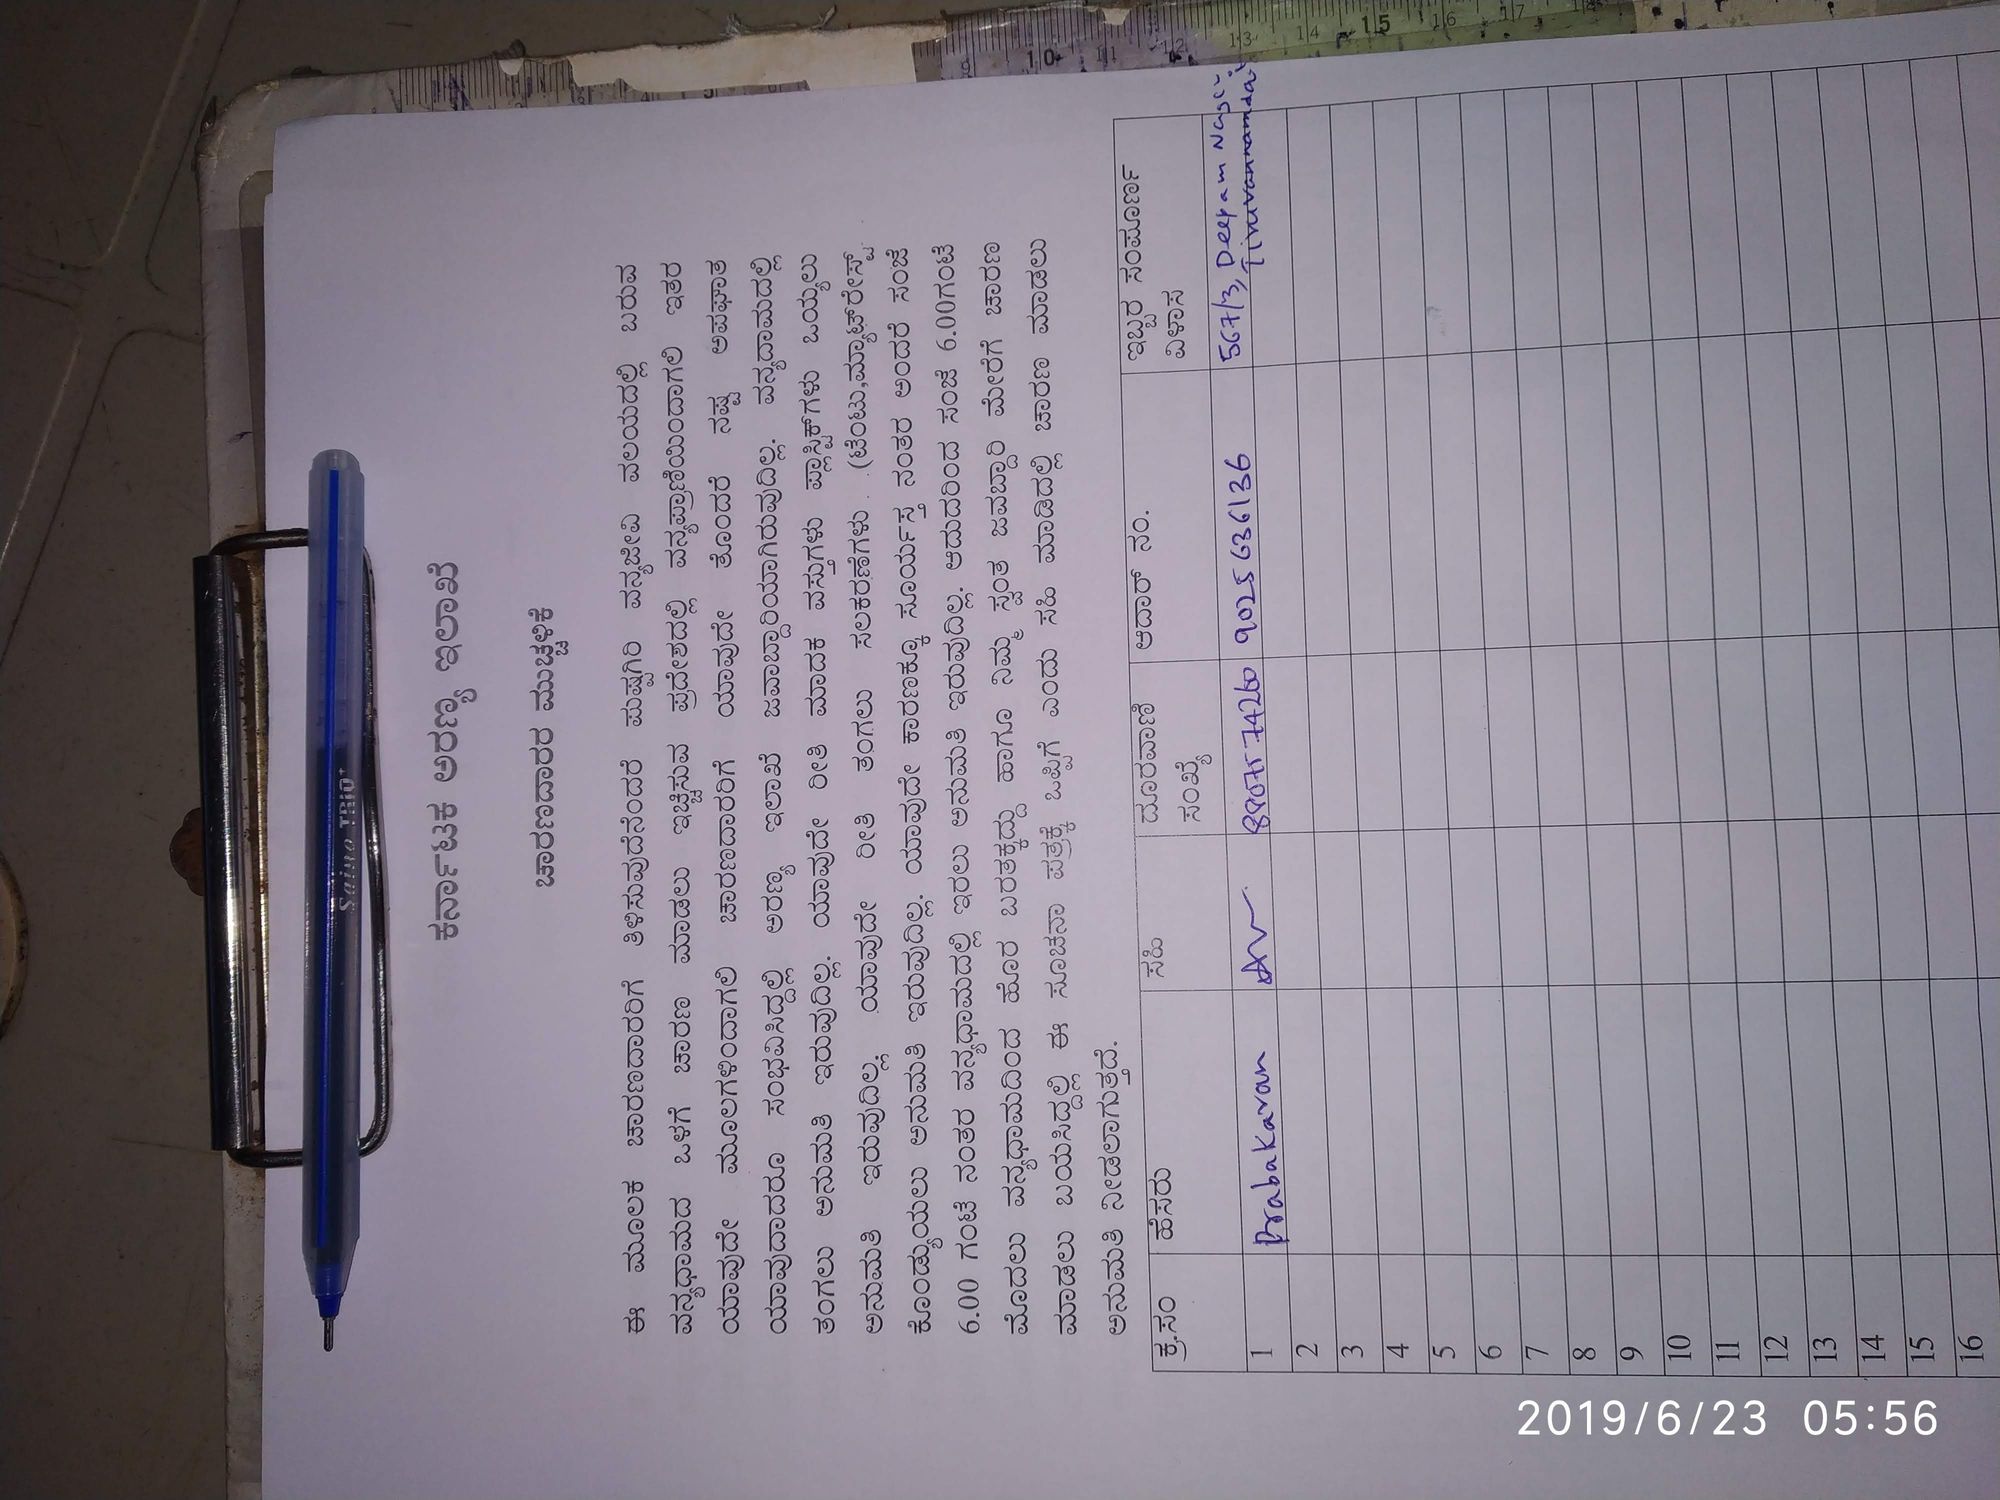 ಕರ್ನಾಟಕ ಅರಣ್ಯ ಇಲಾಖೆ
ಚಾರಣದಾರರ ಮುಚ್ಚಳಿಕೆ
ಈ ಮೂಲಕ ಚಾರಣದಾರರಿಗೆ ತಿಳಿಸುವುದೆನೆಂದರೆ ಪುಷ್ಪಗಿರಿ ವನ್ಯಜೀವಿ ವಲಯದಲ್ಲಿ ಬರುವ
ವನ್ಯಧಾಮದ ಒಳಗೆ ಚಾರಣ ಮಾಡಲು ಇಚ್ಚಿಸುವ ಪ್ರದೇಶದಲ್ಲಿ ವನ್ಯಪ್ರಾಣಿಯಿಂದಾಗಲಿ ಇತರ
ಯಾವುದೇ ಮೂಲಗಳಿಂದಾಗಲಿ ಚಾರಣದಾರರಿಗೆ ಯಾವುದೇ ತೊಂದರೆ ನಷ್ಟ ಅಪಘಾತ
ಯಾವುದಾದರೂ ಸಂಭವಿಸಿದ್ದಲ್ಲಿ ಅರಣ್ಯ ಇಲಾಖೆ ಜವಾಬ್ದಾರಿಯಾಗಿರುವುದಿಲ್ಲ. ವನ್ಯದಾಮದಲ್ಲಿ
ತಂಗಲು ಅನುಮತಿ ಇರುವುದಿಲ್ಲ. ಯಾವುದೇ ರೀತಿ ಮಾದಕ ವಸ್ತುಗಳು ಪ್ಲಾಸ್ಟಿಕ್‌ಗಳು ಒಯ್ಯಲು
ಅನುಮತಿ ಇರುವುದಿಲ್ಲ. ಯಾವುದೇ ರೀತಿ ತಂಗಲು ಸಲಕರಣೆಗಳು .(ಟೆಂಟು,ಮ್ಯಾಟ್‌ರೇಸ್ಟ್
ಕೊಂಡ್ಯುಯಲು ಅನುಮತಿ ಇರುವುದಿಲ್ಲ. ಯಾವುದೇ ಕಾರಣಕ್ಕೂ ಸೂರ್ಯಸ್ತ ನಂತರ ಅಂದರೆ ಸಂಜೆ
6.00 ಗಂಟೆ ನಂತರ ವನ್ಯಧಾಮದಲ್ಲಿ ಇರಲು ಅನುಮತಿ ಇರುವುದಿಲ್ಲ. ಆದುದರಿಂದ ಸಂಜೆ 6.00ಗಂಟೆ
ಮೊದಲು ವನ್ಯಧಾಮದಿಂದ ಹೊರ ಬರತಕ್ಕದ್ದು ಹಾಗೂ ನಿಮ್ಮ ಸ್ವಂತ ಜವಬ್ದಾರಿ ಮೇರೆಗೆ ಚಾರಣ
ಮಾಡಲು ಬಯಸಿದ್ದಲ್ಲಿ ಈ ಸೂಚನಾ ಪತ್ರಕ್ಕೆ ಒಪ್ಪಿಗೆ ಎಂದು ಸಹಿ ಮಾಡಿದಲ್ಲಿ ಚಾರಣ ಮಾಡಲು
ಅನುಮತಿ ನೀಡಲಾಗುತ್ತದೆ.
ಕ್ರ.ಸಂ ಹೆಸರು ಸಹಿ ದೂರವಾಣಿ ಸಂಖ್ಯೆ ಆದಾರ್ ನಂ. ಇಬ್ಬರ ಸಂಪೂರ್ಣ ವಿಳಾಸ
1 Prabakaran 8807574260 9025636136 567/3, Deepam Nagar
Tiruvannamalai
2
3
4
5
6
7
8
9
10
11
12
13
14
15
16
Saino TRIO+
2019/6/23 05:56